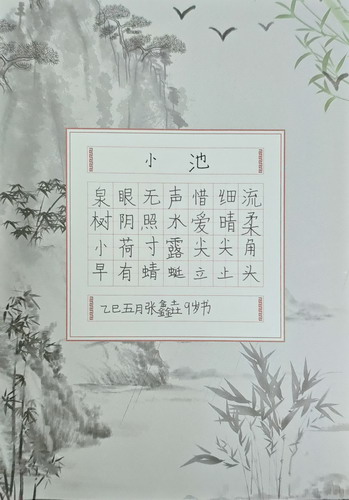 小池
泉眼无声惜细流
树阴照水爱晴柔
小荷寸露尖尖角
早有蜻蜓立止头
乙巳五月张鑫9岁书